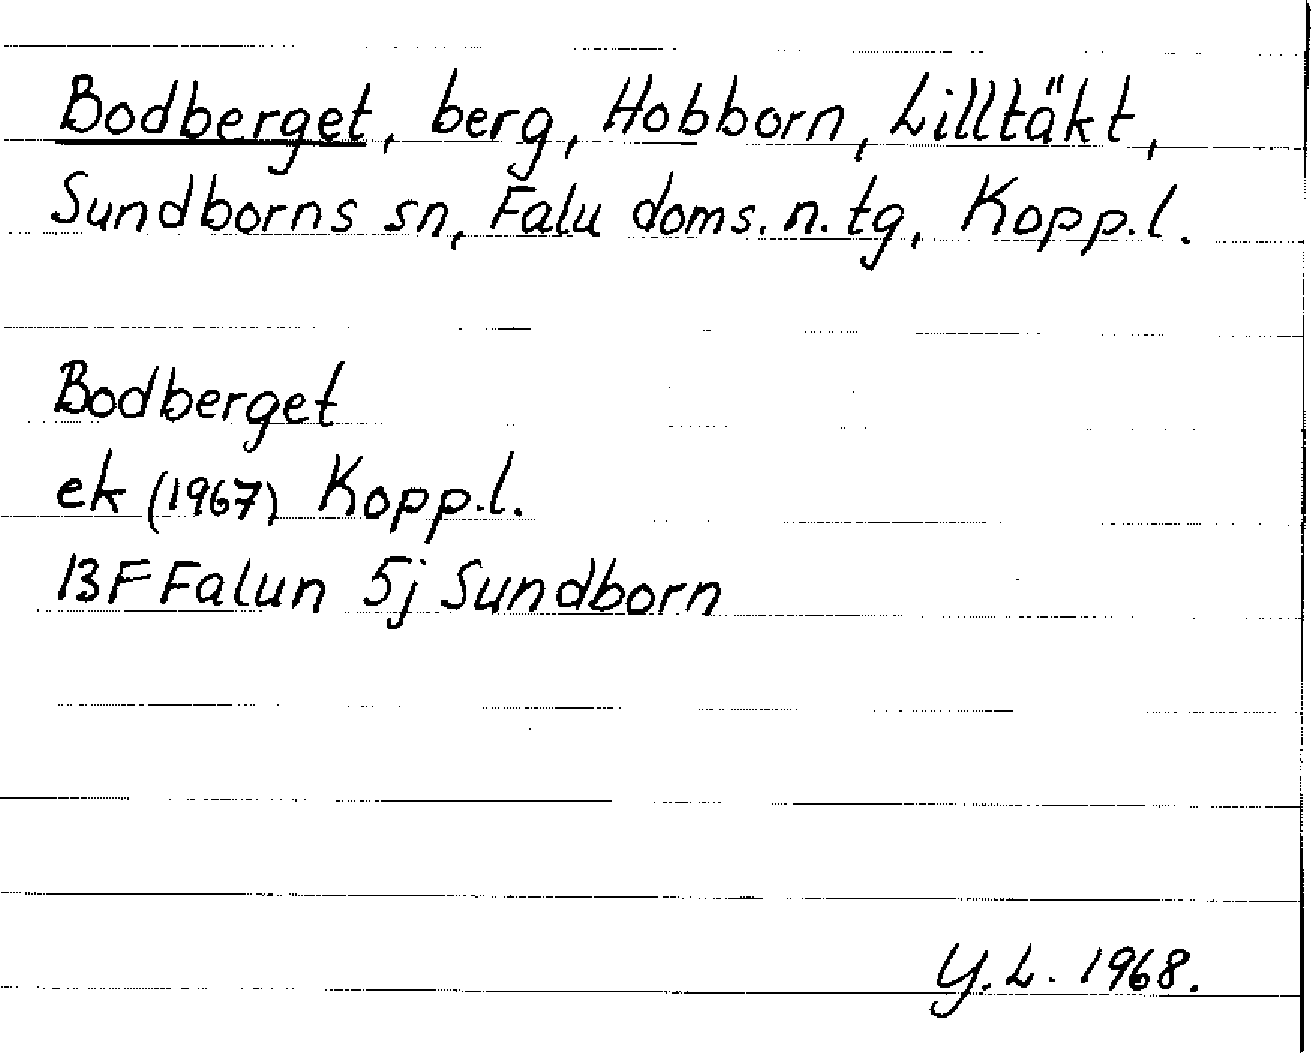 Bodberget, berg, Hobborn, Lilltäkt,
Sundborns sn, Falu doms. n. tg, Kopp.l.
Bodberget
ek (1967) Kopp.l.
13F Falun 5j Sundborn
Y.L. 1968.